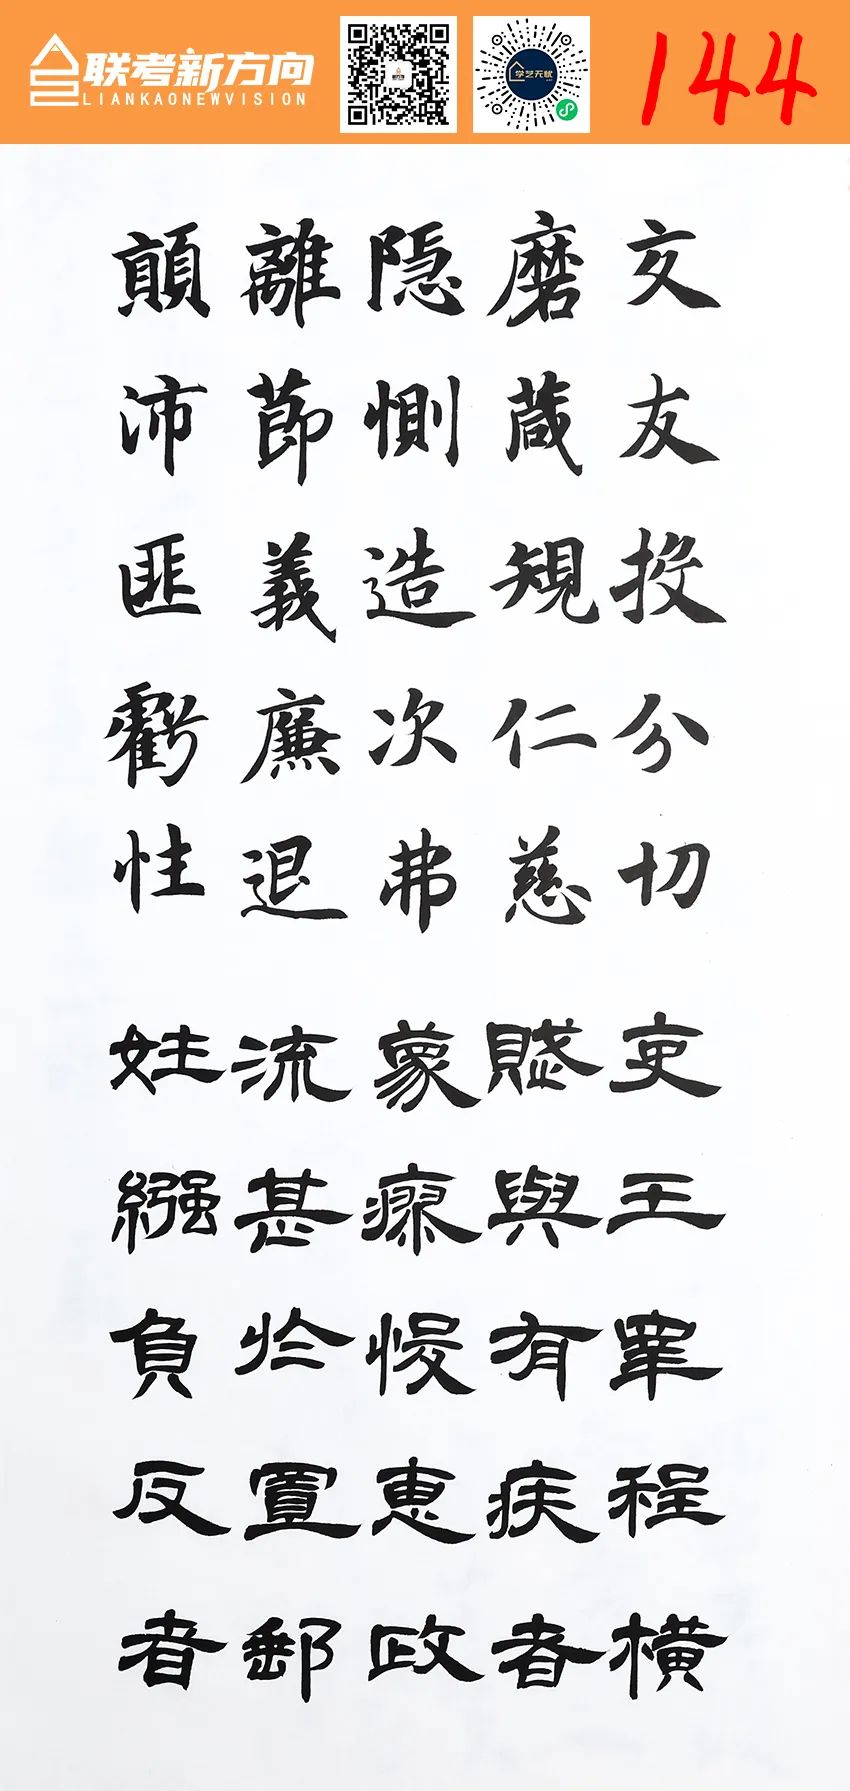 联考新方向
LIANKAONEWVISION
学艺无忧
144
交友投分切
磨箴規仁慈
隐惻造次弗
離節義廉退
顛沛匪虧性
吏王宰程橫
賦與有疾者
蒙瘳悛惠政
流甚於置郵
姓繦負反者